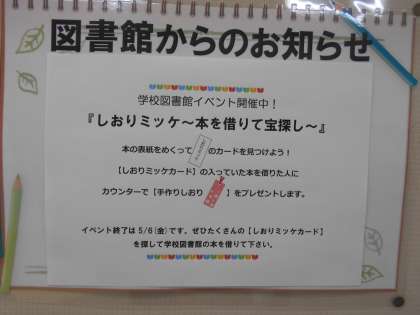 図書館からのお知らせ
学校図書館イベント開催中！
『しおりミッケ～本を借りて宝探し～』
本の表紙をめくって のカードを見つけよう！
【しおりミッケカード】の入っていた本を借りた人に
カウンターで【手作りしおり 】をプレゼントします。
イベント終了は5/6(金)です。ぜひたくさんの【しおりミッケカード】
を探して学校図書館の本を借りて下さい。